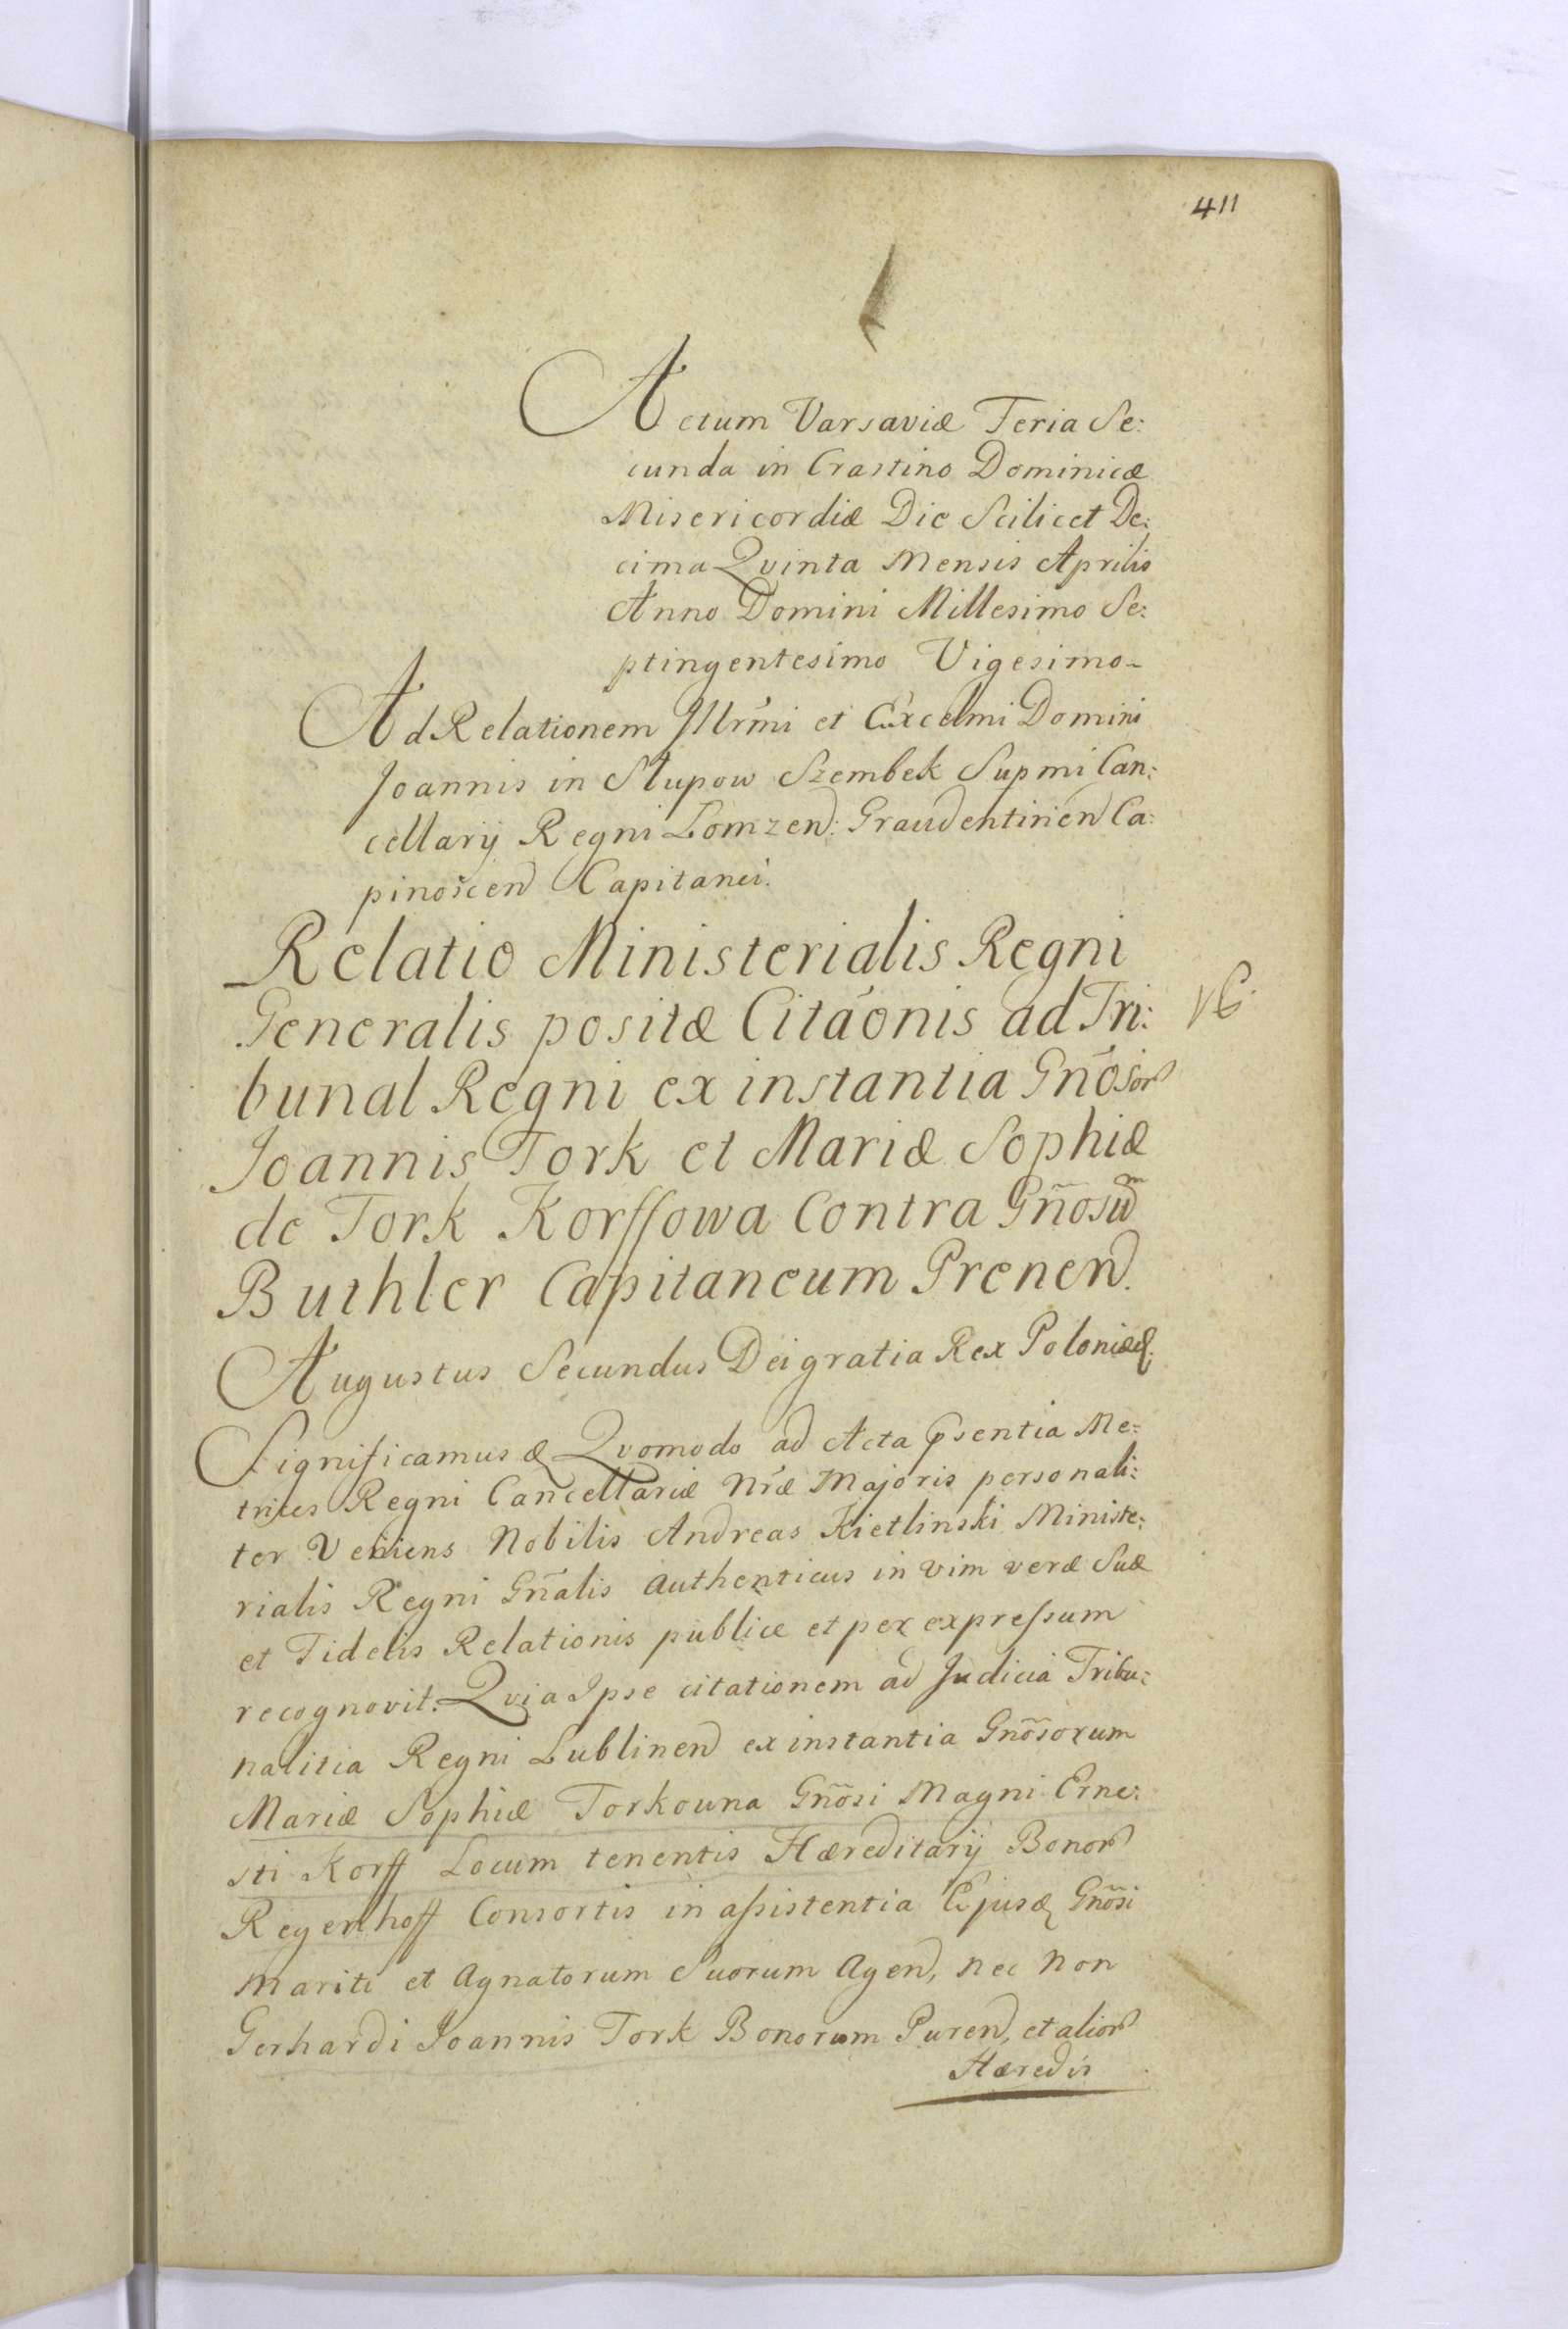 411
Actum Varsaviæ Feria Se:
cunda in Crastino Dominicæ
Misericordiæ Die Scilicet De:
cima Qvinta Mensis Aprilis
Anno Domini Millesimo Se:
ptingentesimo Vigesimo-
Ad Relationem Illrm̃i et Excelmi Domini
Joannis in Słupow Szembek Supmi Can:
cellarij Regni Lomzen: Graudentinen Ca:
pinoscen Capitanei.
Relatio Ministerialis Regni
Generalis positæ Citãonis ad Tri:
bunal Regni ex instantia Gnõsor
Joannis Fork et Mariæ Sophiæ
de Fork Korffowa Contra Gñosum
Buthler Capitaneum Prenen.
Augustus Secundus Dei gratia Rex Poloniæ &.
Significamus & Qvomodo ad Acta pñsentia Me:
trices Regni Cancellariæ Nr̃æ Majoris personali:
ter Veniens Nobilis Andreas Kietlinski Ministe:
rialis Regni Gñalis Authenticus in vim veræ Suæ
et Fidelis Relationis publice et per expressum
recognovit. Qvia Ipse citationem ad Judicia Tribu:
nalitia Regni Lublinen ex instantia Gnõsorum
Mariæ Sophiæ Forkouna Gñosi Magni Erne:
sti Korff Locum tenentis Hæreditarij Bonor
Regenhoff Consortis in assistentia Ejusd Gnõsi
Mariti et Agnatorum Suorum Agen, nec non
Gerhardi Joannis Fork Bonorum Puren, et alior
Hæredis